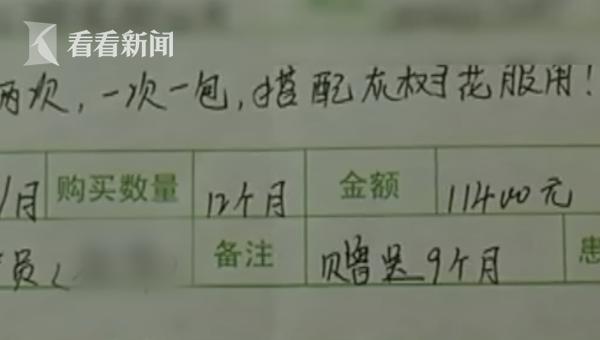 看看新闻
两次，一次一包，搭配灰树花服用！
/月 购买数量 12个月 金额 11400元
员 备注 赠吴9个月 患